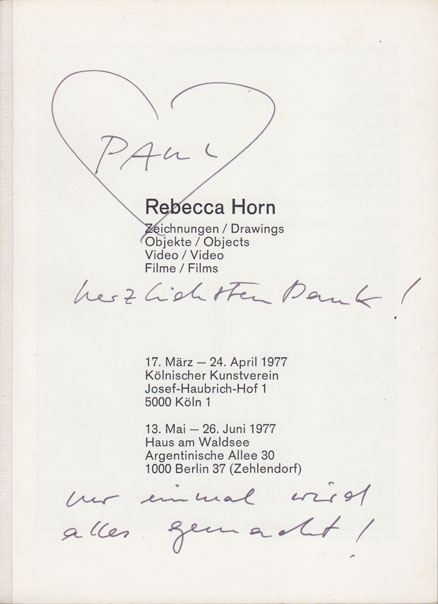 PAUL
Rebecca Horn
Zeichnungen / Drawings
Objekte / Objects
Video / Video
Filme / Films
herzlichsten Dank!
17. März — 24. April 1977
Kölnischer Kunstverein
Josef-Haubrich-Hof 1
5000 Köln 1
13. Mai — 26. Juni 1977
Haus am Waldsee
Argentinische Allee 30
1000 Berlin 37 (Zehlendorf)
nur einmal wird
alles gemacht!